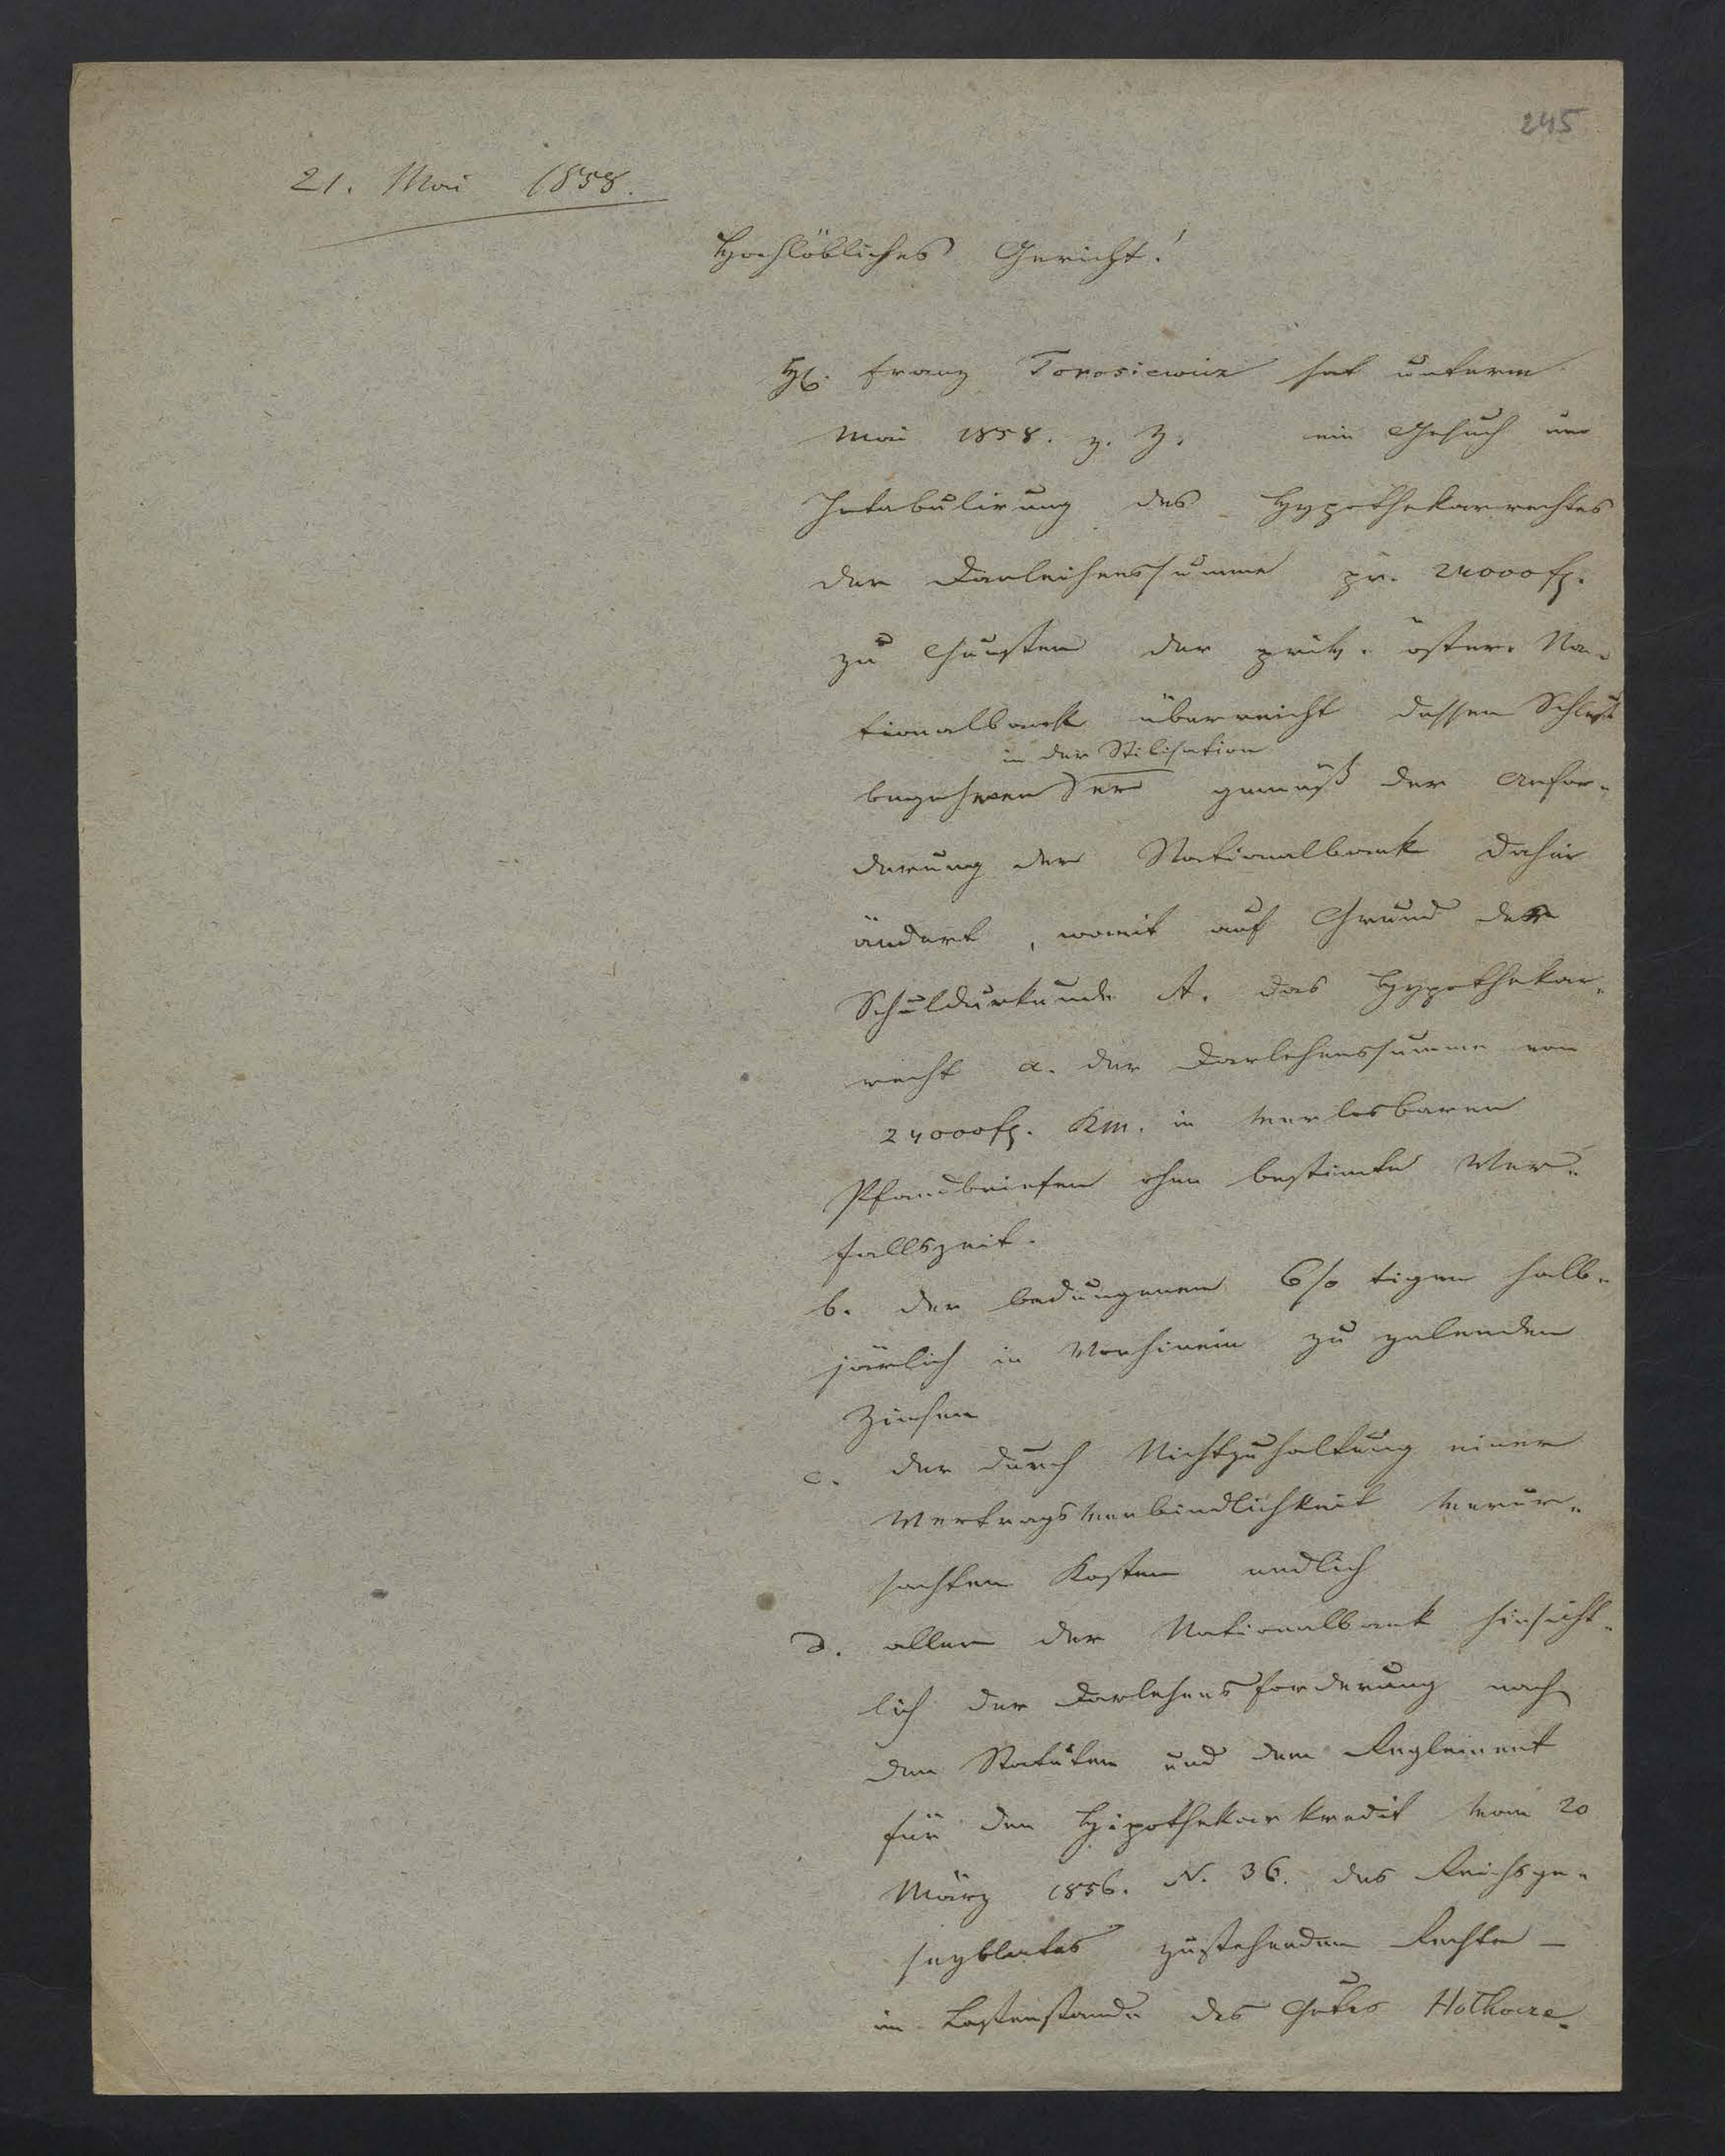 245
21. Mai 1858.
Hochlöbliches Gericht!
H. Franz Torosiewicz hat unterm
Mai 1858. z. Z. ein Gesuch um
Intabulirung des Hypothekarrechtes
der Darleihenssumme pr. 24000 fl.
zu Gunsten der priv. öster. Na-
tionalbank überreicht dessen Schluß
in der Stilisation
begehren er gemäß der Anfor-
derung der Nationalbank dahin
ändert, womit auf Grund der
Schuldurkunde A. das Hypothekar-
recht a. der Darlehenssumme von
24000 fl. Km. in verlosbaren
Pfandbriefen ohne bestimte Ver-
fallszeit.
b. der bedungenen 6% tigen halb-
järlich in Vorhinein zu zalenden
Zinsen
c. der durch Nichtzuhaltung einer
Vertragsverbindlichkeit verur-
sachten Kosten endlich
d. aller der Nationalbank hinsicht-
lich der Darlehensforderung nach
den Statuten und dem Reglement
für den Hipothekarkredit vom 20
März 1856. N. 36. des Reichsge-
sezblates zustehenden Rechte –
im Lastenstande des Gutes Hołhocze